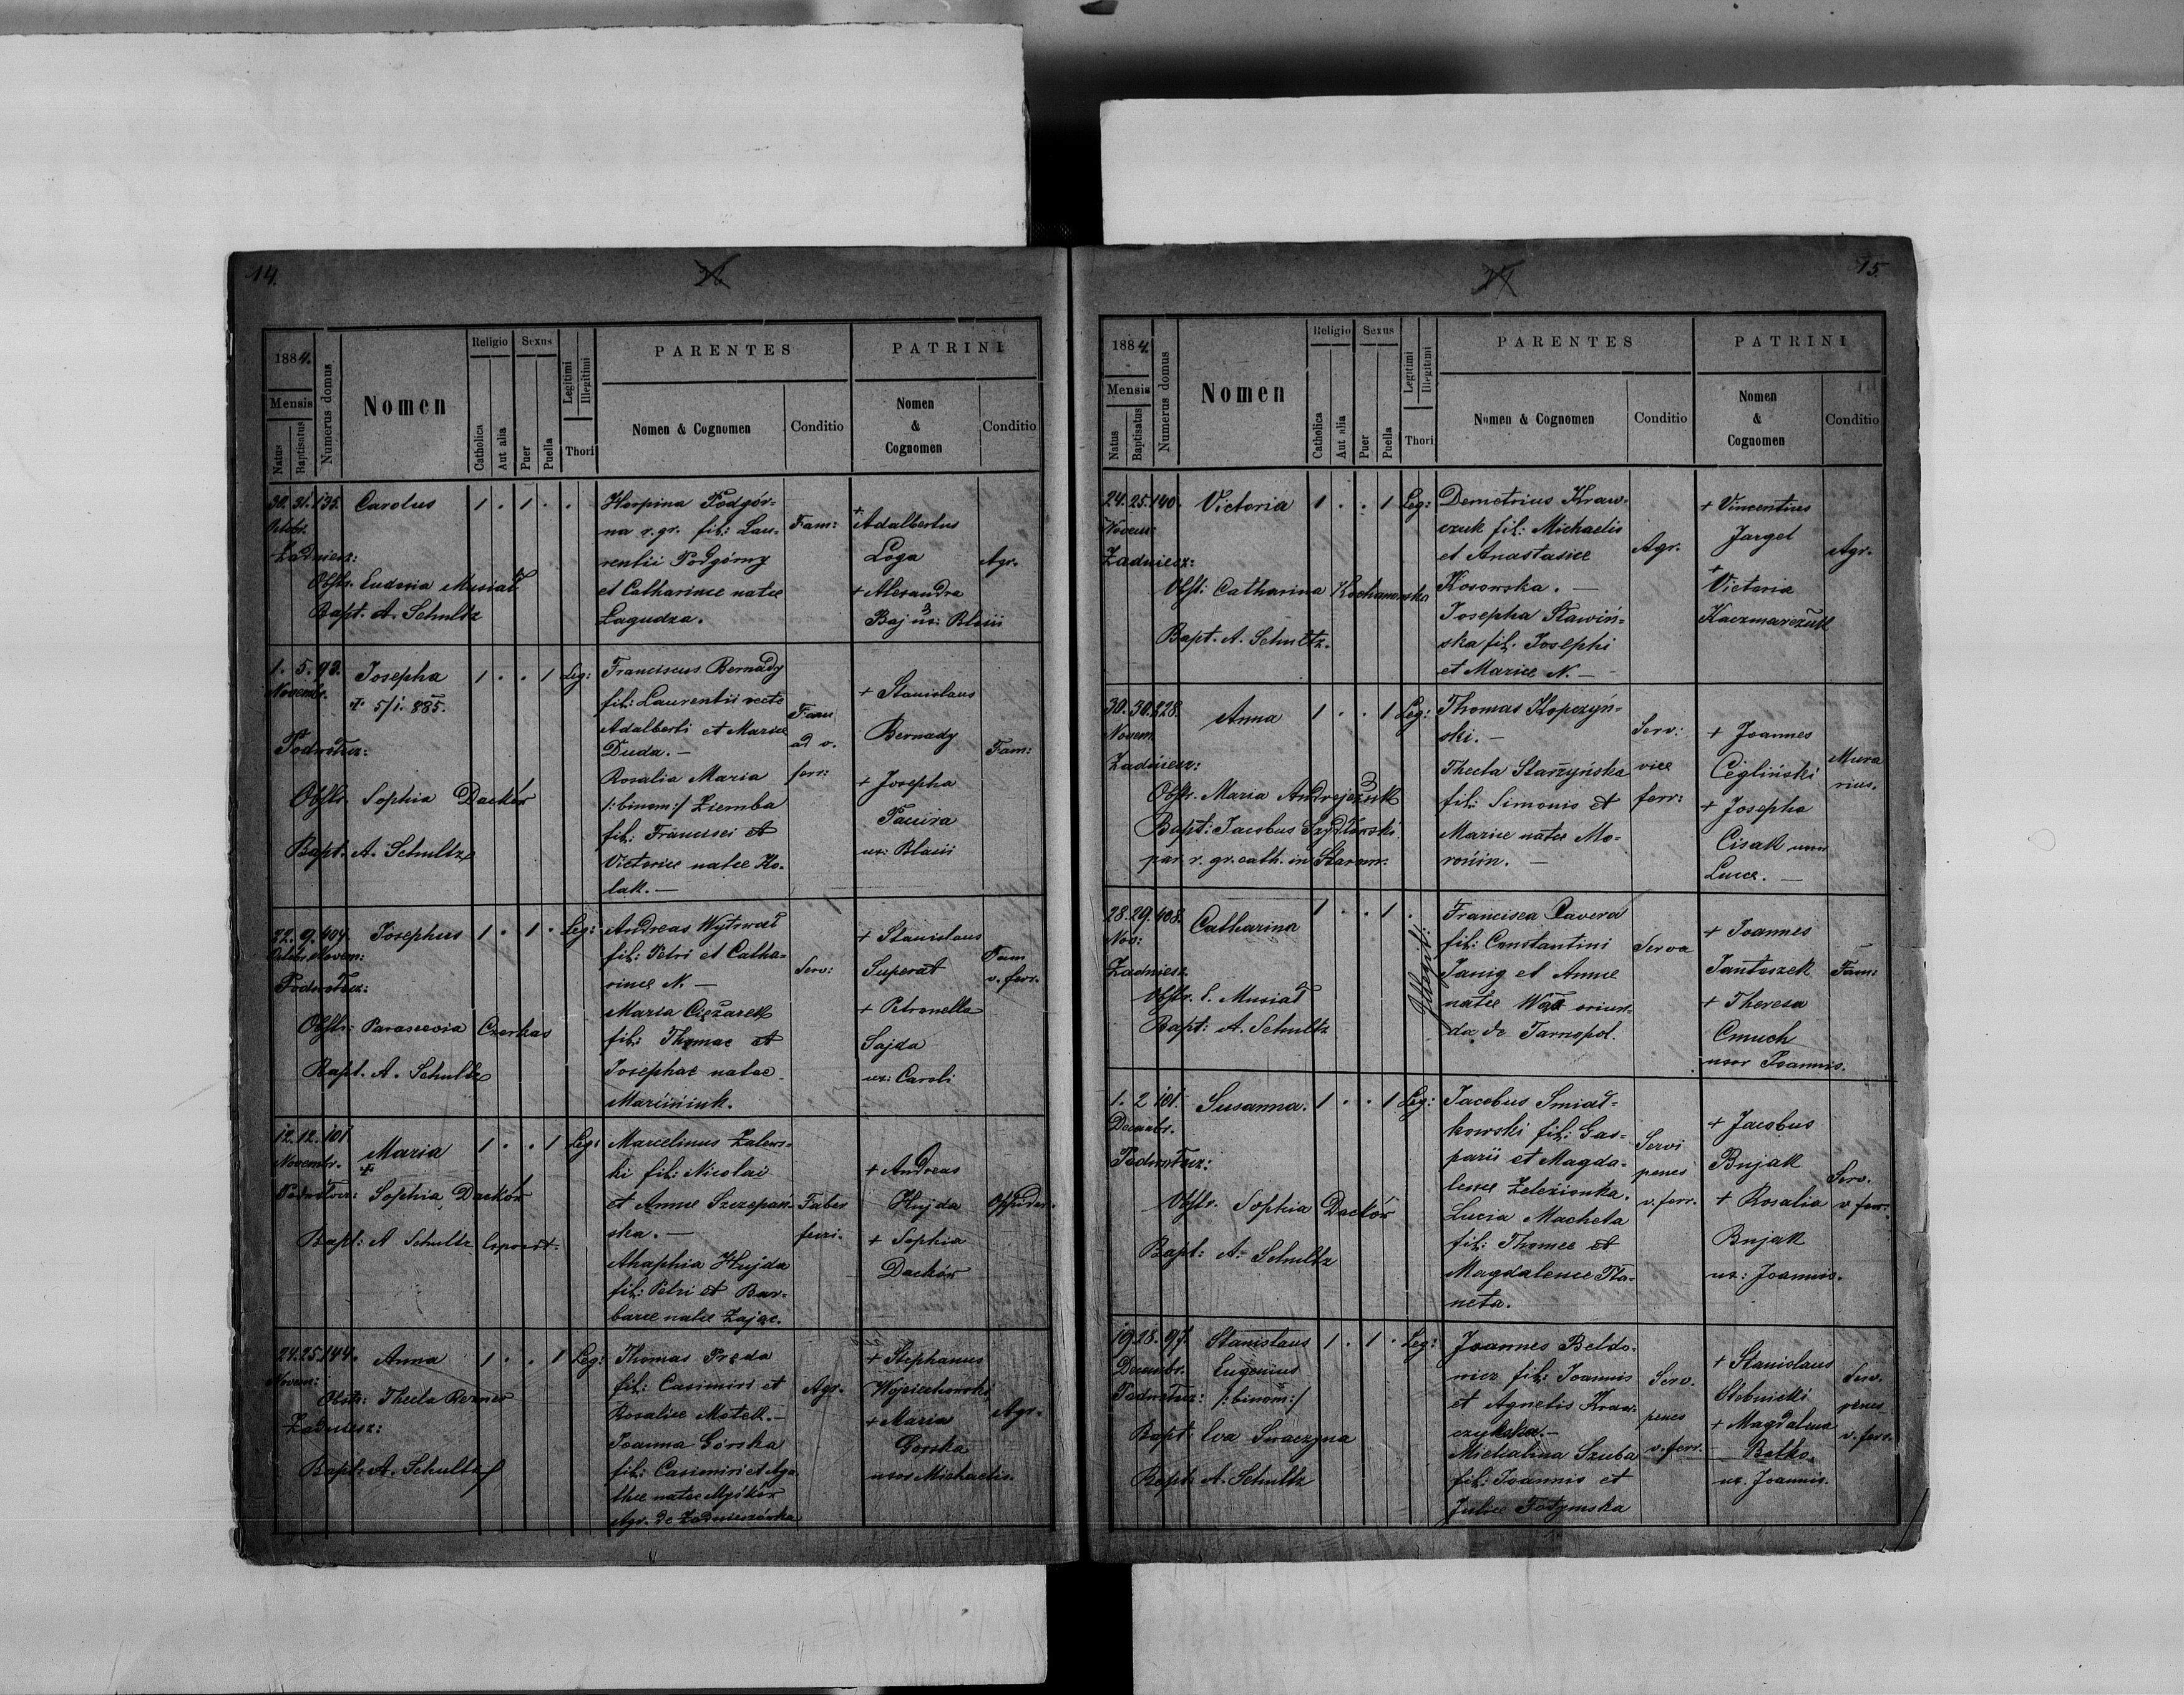 14.
1884.
Mensis
Natus
Baptisatus
Numerus domus
Nomen
Religio
Catholica
Aut alia
Sexus
Puer
Puella
Legitimi
Illegitimi
Thori
PARENTES
Nomen & Cognomen
Conditio
PATRINI
Nomen
&
Cognomen
Conditio
30. 31. 135. Carolus 1 . 1 . .
Octobr.
Zadniesz:
Obstr. Eudonia Musiał
Bapt. A. Schultz
Horpina Podgór-
na r. gr. fil: Lau-
rentii Podgórny
et Catharinae natae
Lagudza.
Fam:
+ Adalbertus
Loga
+ Alexandra
Baj ux: Blasii
Agr.
1. 5. 93. Josepha 1 . . 1 Leg:
Novembr. + 5/1. 885.
Podwołocz:
Obstr. Sophia Daćków
Bapt. A. Schultz
Franciscus Bernady
fil: Laurentii recte
Adalberti et Mariae
Duda. —
Rosalia Maria
/:binom:/ Ziemba
fil: Francisci et
Victoriae natae Ko-
lak. —
Fam
ad v.
ferr:
+ Stanislaus
Bernady
+ Josepha
Pacuira
ux: Blasii
Fam:
22. 9. 404. Josephus 1 . 1 . Leg:
Octobr. Novem:
Podwołocz:
Obstr: Parascevia Czerkas
Bapt. A. Schultz
Andreas Wytrwał
fil: Petri et Catha-
rinae N. —
Maria Ciężarek
fil: Thomae et
Josephae natae
Marciniuk.
Serv:
+ Stanislaus
Superat
+ Petronella
Sajda
ux: Caroli
Fam
v. ferr.
12. 12. 101 Maria 1 . . 1 Leg:
Novembr. +
Podwołocz: Sophia Daćków
Bapt: A Schultz
Marcelinus Zalews-
ki fil: Nicolai
et Annae Szczepań-
ska. —
Ahaphia Hujda
fil: Petri et Bar-
barae natae Zając.
Faber
ferri.
+ Andreas
Hujda
+ Sophia
Daćków
24. 25. 144. Anna 1 . . 1 Leg:
Novem:
Obstr: Thecla Rezner
Zadniesz:
Bapt: A. Schultz
Thomas Preda
fil: Casimiri et
Rosaliae Motek. —
Joanna Górska
fil: Casimiri et Aga-
thae natae Myśków
Agr. de Zadnieszówka
Agr.
+ Stephanus
Wojciechowski
+ Maria
Gorska
uxor Michaelis.
Agr.
15.
1884.
Mensis
Natus
Baptisatus
Numerus domus
Nomen
Religio
Catholica
Aut alia
Sexus
Puer
Puella
Legitimi
Illegitimi
Thori
PARENTES
Nomen & Cognomen
Conditio
PATRINI
Nomen
&
Cognomen
Conditio
24. 25. 140. Victoria 1 . . 1 Leg:
Novem:
Zadniesz:
Obst: Catharina Kochanowska
Bapt. A. Schultz.
Demetrius Kraw-
czuk fil: Michaelis
et Anastasiae
Kosowska. —
Josepha Sławiń-
ska fil. Josephi
et Mariae N. —
Agr.
+ Vincentius
Jargel
+ Victoria
Kaczmarczuk
Agr.
30. 30. 328. Anna 1 . . 1 Leg:
Novem
Zadniesz:
Obstr. Maria Andrejczuk
Bapt: Jacobus Szydłowski
par. r. gr. cath. in
Thomas Kopczyń-
ski. —
Thecla Starzyńska
fil: Simonis et
Mariae natae Mo-
roúin. —
Serv:
viae
ferr:
+ Joannes
Cegliński
+ Josepha
Cisak uxor
Lucae. —
Mura
rius.
28. 29. 408. Catharina 1 . . 1 .
Nov:
Zadniesz.
Obstr. E. Musiał
Bapt: A. Schultz
Illegit:
Francisca Cavera
fil: Constantini
Janig et Annae
natae oriun-
da de Tarnopol.
Serva
+ Joannes
Jantoszek
+ Theresa
Cmuch
uxor Joannis.
Fam:
1. 2 101. Susanna. 1 . . 1 Leg:
Decembr.
Podwołocz:
Obstr. Sophia Daćków
Bapt: A. Schultz
Jacobus Smiał-
kowski fil: Gas-
paris et Magda-
lenae Zelezionka.
Lucia Macheta
fil: Thomae et
Magdalenae Pła-
neta.
Servi
penes
v. ferr.
+ Jacobus
Bujak
+ Rosalia
Bujak
ux: Joannis.
Serv.
v ferr.
19 28. 97. Stanislaus 1 . 1 . Leg:
Decembr. Eugenius
Podwołocz: /:binom:/
Bapt: Eva Swaczyna
Bapt. A. Schultz
Joannes Beldo-
wicz fil: Joannis
et Agnetis Kraw-
czynska. —
Michalina Szuba
fil: Joannis et
Juliae Fotymska
Serv.
penes
v. ferr.
+ Stanislaus
Stebnicki
+ Magdalena
Botko
ux. Joannis.
Serv.
penes
v. ferr.